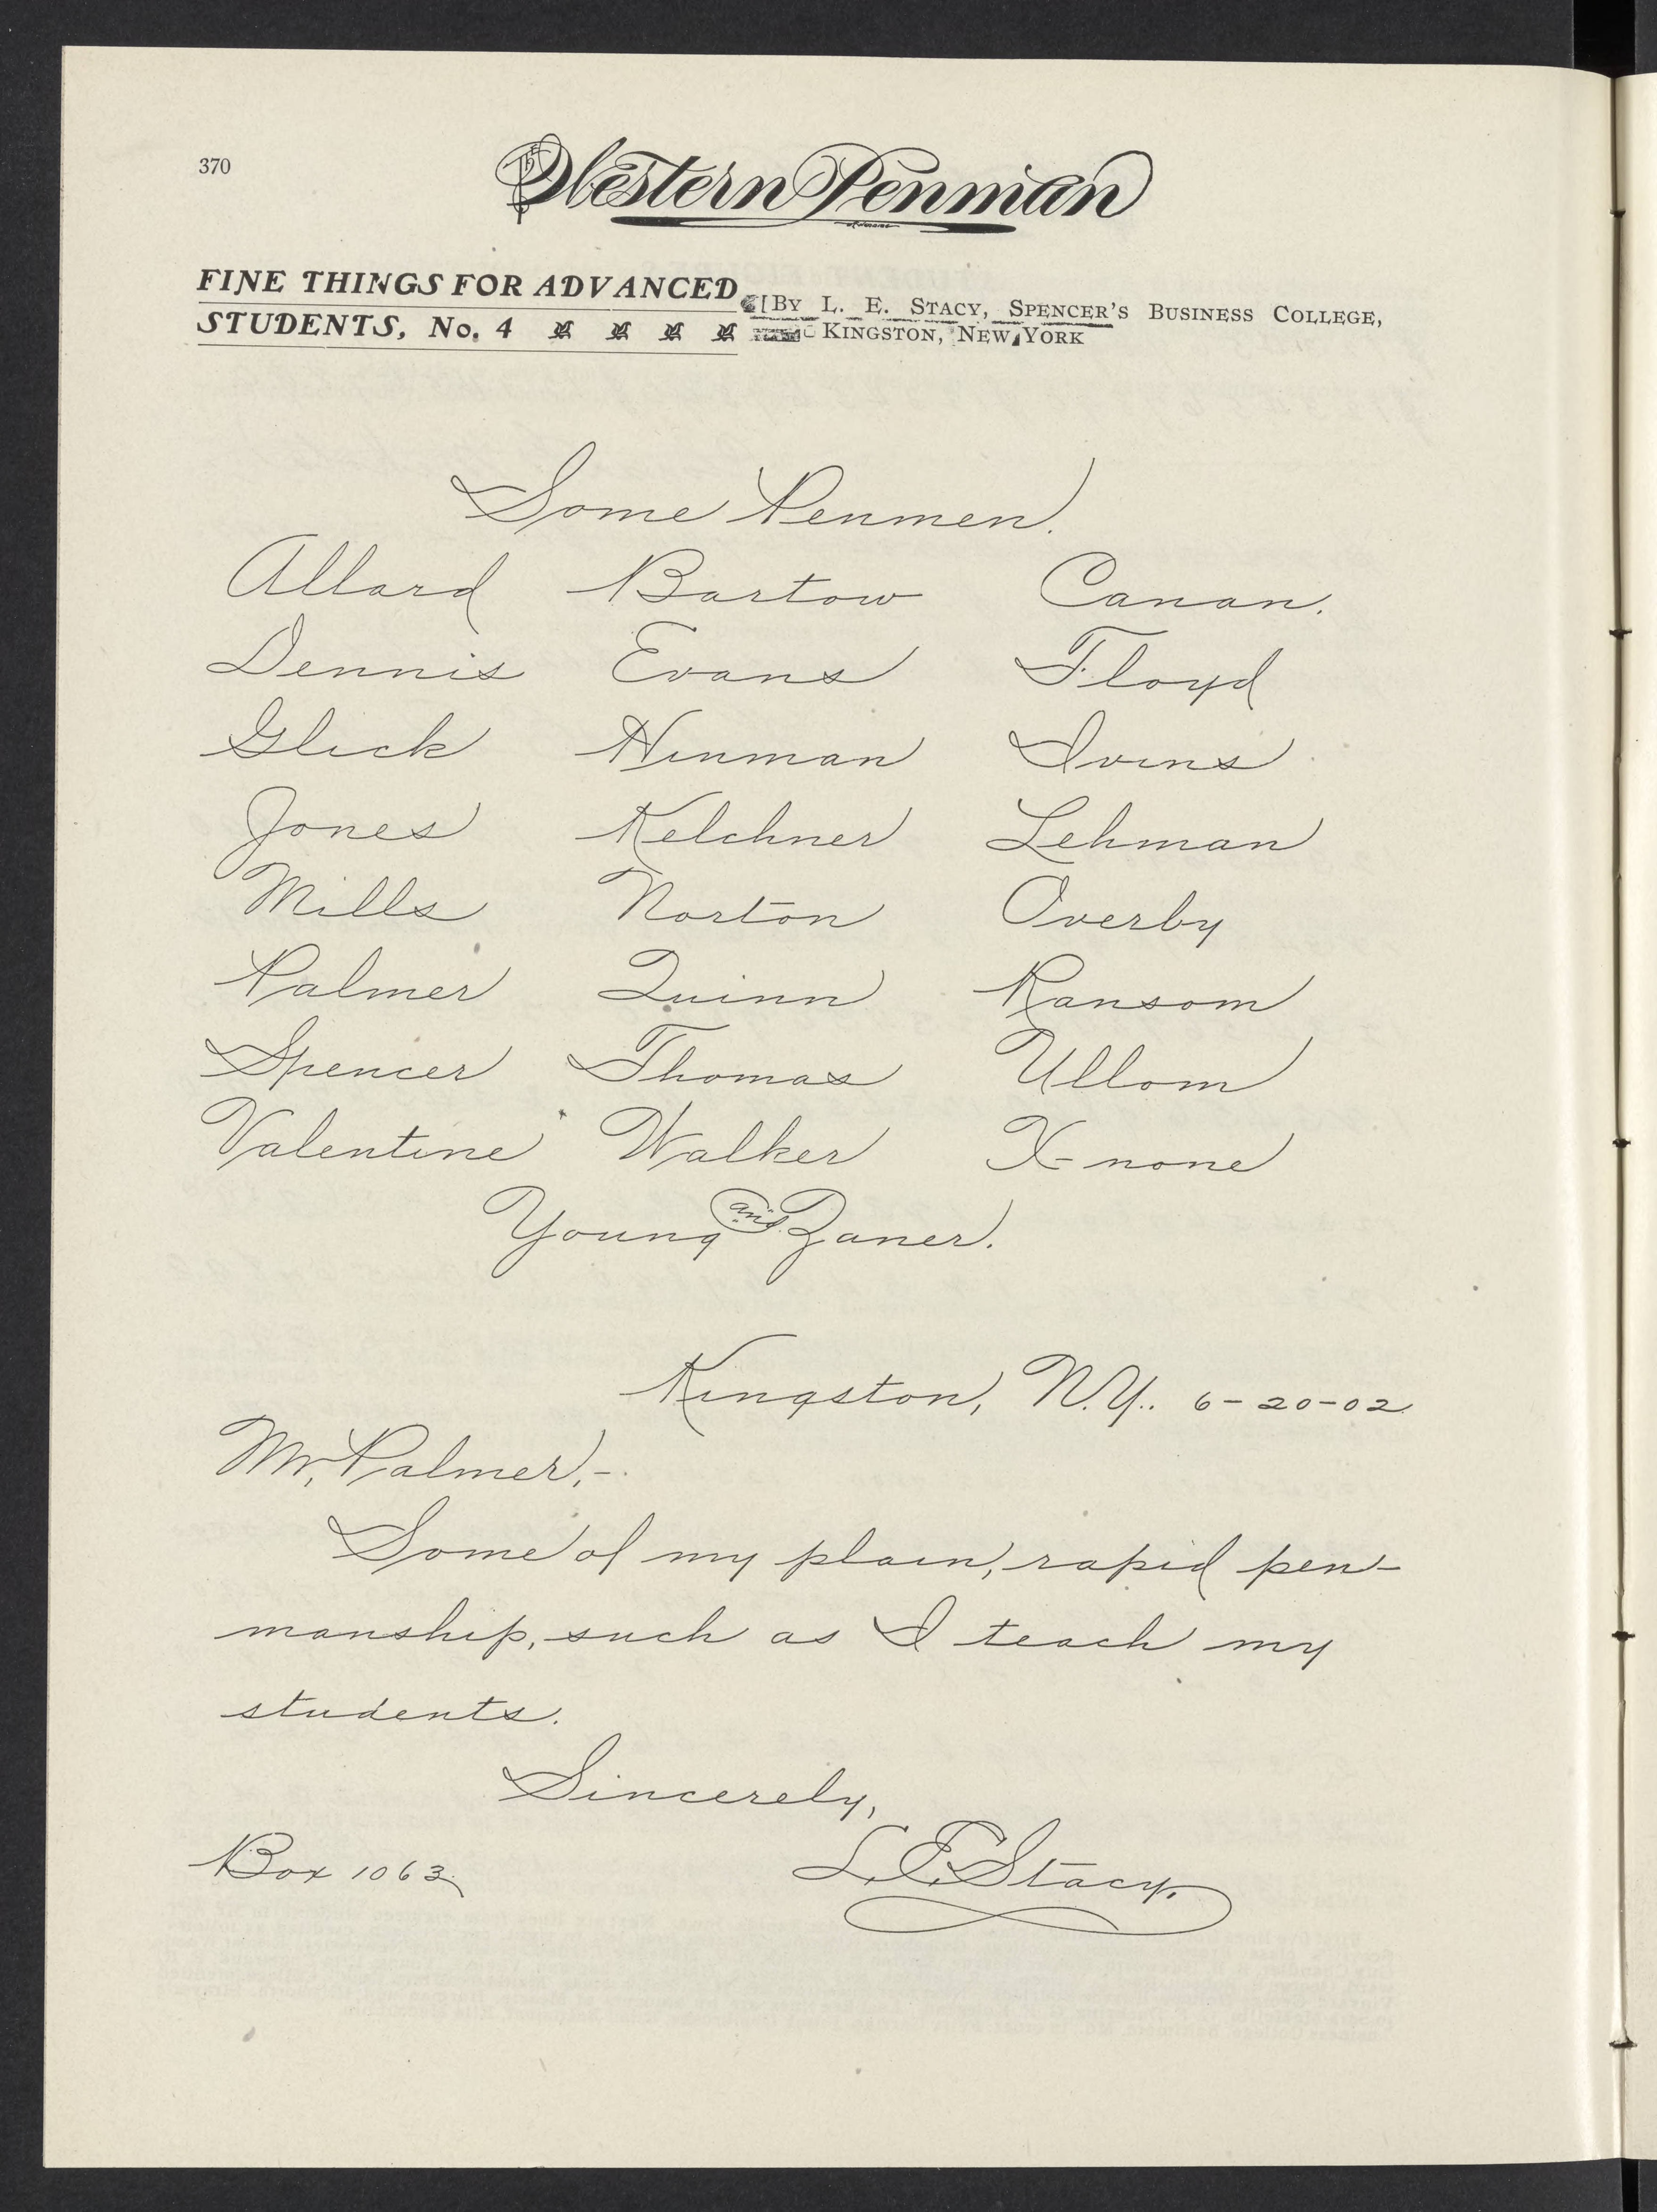 370
The Western Penman
FINE THINGS FOR ADVANCED
STUDENTS, No. 4
[BY L. E. STACY, SPENCER'S BUSINESS COLLEGE,
KINGSTON, NEW YORK
Some Penmen.
Allard Bartow Canan.
Dennis Evans Floyd
Glick Hinman Ivins
Jones Kelchner Lehman
Mills Norton Overby
Palmer Quinn Ransom
Spencer Thomas Ullom
Valentine Walker X-none
Young and Zaner.
Kingston, N.Y.. 6-20-02.
Mr. Palmer,-.
Some of my plain, rapid pen-
manship, such as I teach my
students.
Sincerely,
Box 1063. L. E. Stacy.